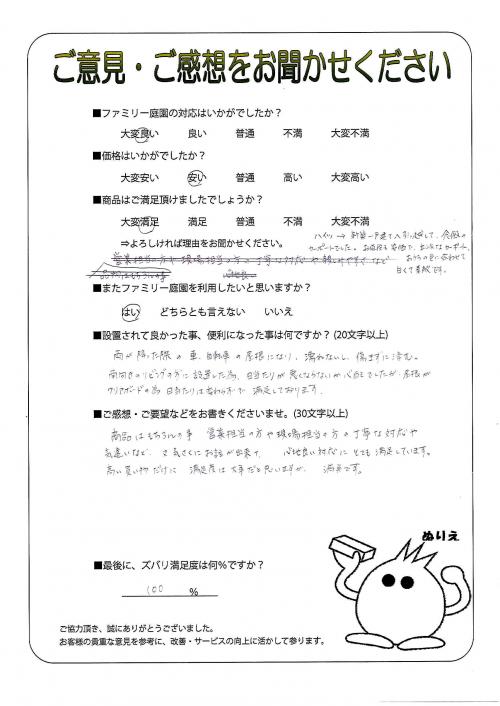 ご意見・ご感想をお聞かせください
■ファミリー庭園の対応はいかがでしたか?
大変良い 良い 普通 不満 大変不満
■価格はいかがでしたか?
大変安い 安い 普通 高い 大変高い
■商品はご満足頂けましたでしょうか?
大変満足 満足 普通 不満 大変不満
⇒よろしければ理由をお聞かせください。
ハイツ→新築一戸建て入引っ越して、念願の
カーポートでした。お値段も安価で、
おうちの色に合わせて
白くて素敵です。
営業担当の方や現場担当の方の丁寧な対応や親しみやすさなど
■またファミリー庭園を利用したいと思いますか?
はい どちらとも言えない いいえ
■設置されて良かった事、便利になった事は何ですか?(20文字以上)
雨が降った際の車、自転車の屋根になり、濡れないし、傷まずに済む。
南向きのリビングの方に設置した為、日当たりが悪くならないか心配でしたが、屋根が
クリアボードの為 日当たりは変わらずで 満足しております。
■ご感想・ご要望などをお書きくださいませ。(30文字以上)
商品はもちろんの事 営業担当の方や現場担当の方の丁寧な対応や
気遣いなど、で気さくにお話が出来て、心地良い対応にとても満足しています。
高い買い物だけに 満足度は大事だと思いますが、満点です。
ぬりえ
■最後に、ズバリ満足度は何%ですか?
100 %
ご協力頂き、誠にありがとうございました。
お客様の貴重な意見を参考に、改善・サービスの向上に活かして参ります。